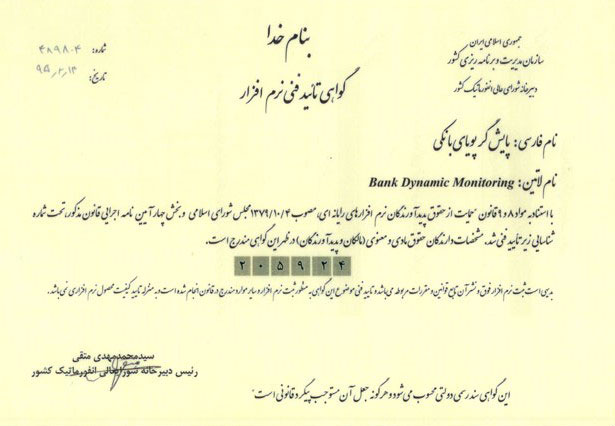 بنام خدا
جمهوری اسلامی ایران
سازمان مدیریت و برنامه ریزی کشور
دبیرخانه شورای عالی انفورماتیک کشور
شماره: ۴۸۹۸۰۴
تاریخ: ۹۵/۲/۱۴
گواهی تائید فنی نرم افزار
نام فارسی: پایش گر پویای بانکی
نام لاتین: Bank Dynamic Monitoring
با استناد به مواد ۸ و ۹ قانون "حمایت از حقوق پدیدآورندگان نرم افزارهای رایانه ای، مصوب ۱۳۷۹/۱۰/۴ مجلس شورای اسلامی و بخش چهار آیین نامه اجرایی قانون مذکور، تحت شماره
شناسایی زیر تأیید فنی شد. مشخصات دارندگان حقوق مادی و معنوی (مالکان و پدیدآورندگان) در ظهر این گواهی مندرج است.
۲۰۵۹۲۴
بدیهی است ثبت نرم افزار فوق و نشر آن تابع قوانین و مقررات مربوطه می باشد و تایید فنی موضوع این گواهی به منظور ثبت نرم افزار و سایر موارد مندرج در قانون انجام شده است و به منزله تایید کیفیت محصول نرم افزاری نمی باشد.
سیدمحمدمهدی متقی
رئیس دبیرخانه شورایعالی انفورماتیک کشور
این گواهی سند رسمی دولتی محسوب می شود و هرگونه جعل آن مستوجب پیگرد قانونی است"